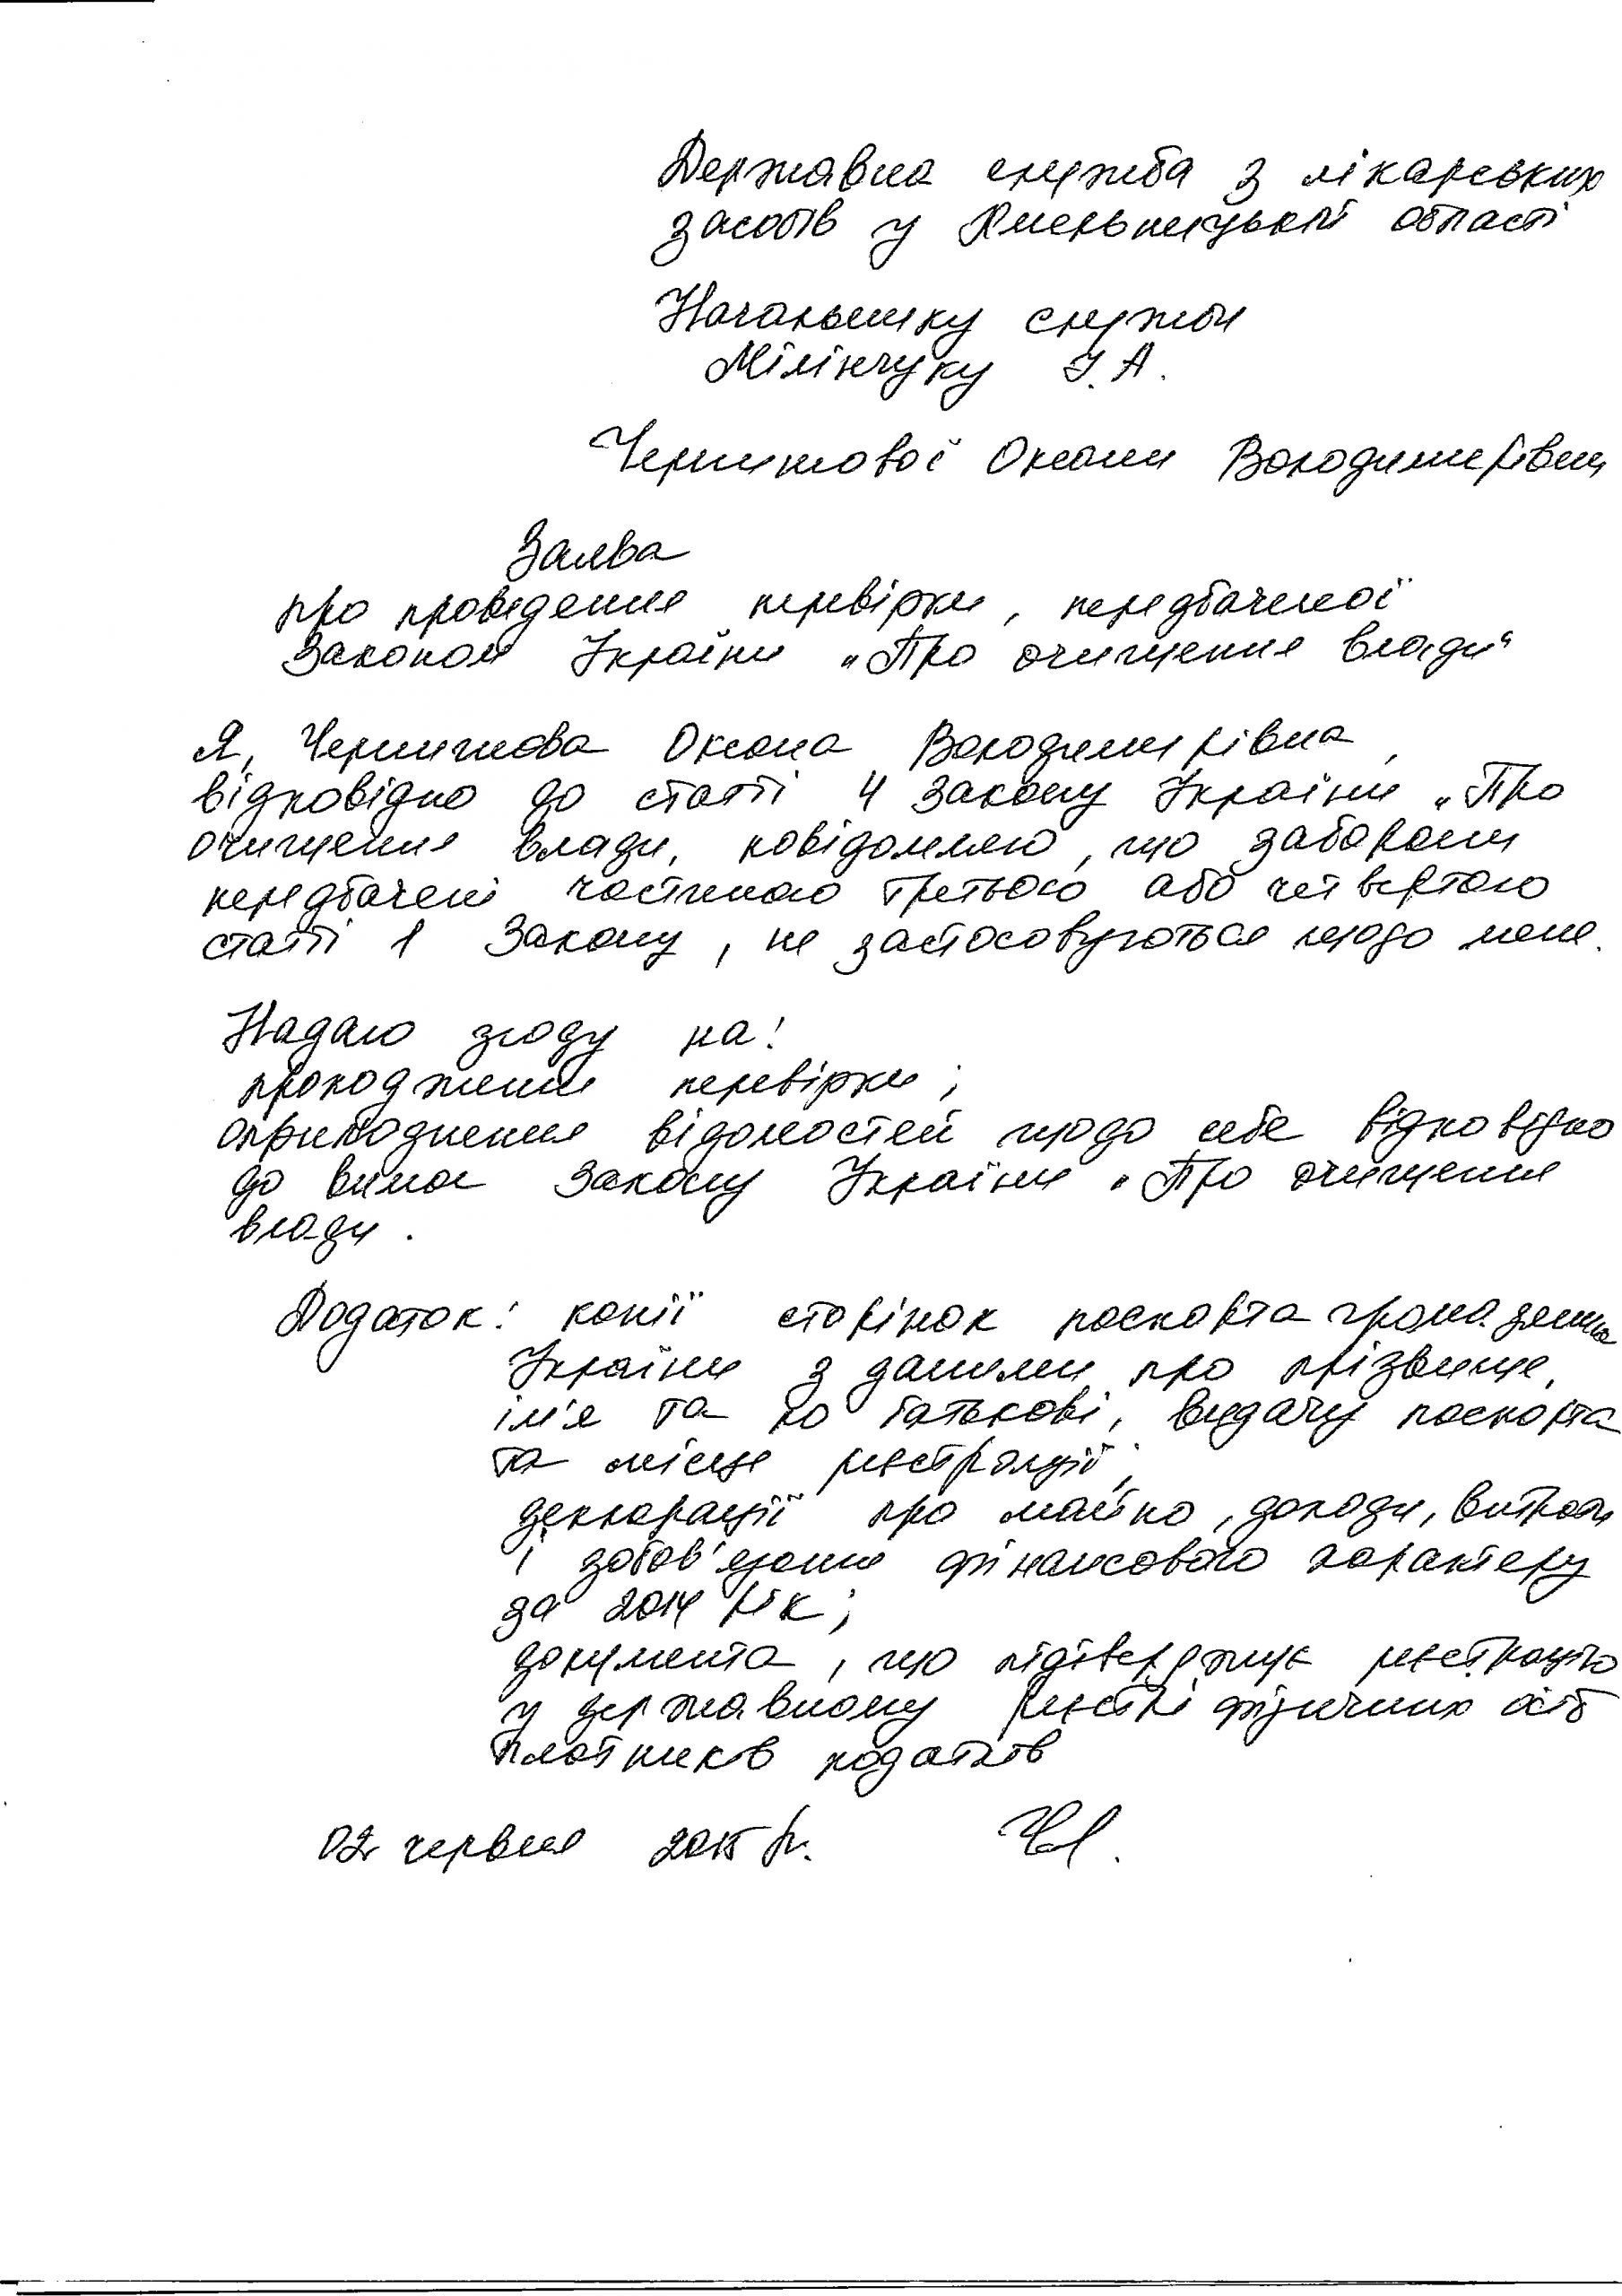 Державна служба з лікарських
засобів у Хмельницькій області
Начальнику служби
Мілінчуку І. А.
Оксани Володимирівни
Заява
про проведення перевірки, передбаченої
Законом України „Про очищення влади"
Я, Оксана Володимирівна,
відповідно до статті 4 Закону України „Про
очищення влади, повідомляю, що заборони
передбачені частиною третьою або четвертою
статті 1 Закону, не застосовуються щодо мене.
Надаю згоду на:
проходження перевірки;
оприлюднення відомостей щодо себе відповідно
до вимог Закону України „Про очищення
влади.
Додаток: копії сторінок паспорта громадянина
України з даними про прізвище,
ім'я та по батькові, видачу паспорта
та місце реєстрації,
декларації про майно, доходи, витрати
і зобов'язання фінансового характеру
за 2014 рік;
документа, що підтверджує реєстрацію
у державному реєстрі фізичних осіб
платників податків
02 червня 2015 р.